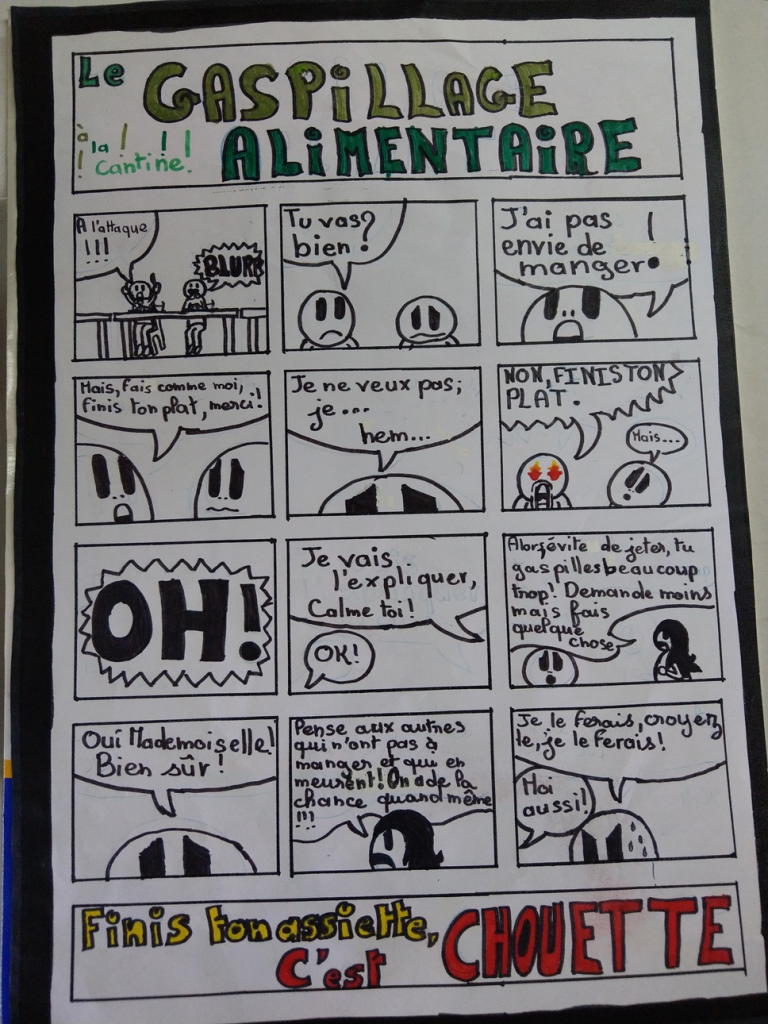 Le GASPiLLAGE
à la cantine! ! ! ! ! ALiMENTAiRE
A l'attaque
!!!
BLURB
Tu vas
bien?
J'ai pas
envie de
manger!
Mais, fais comme moi,
finis ton plat, merci!
Je ne veux pas;
je...
hem...
NON, FINIS TON
PLAT.
Mais...
OH!
Je vais
l'expliquer,
Calme toi!
OK!
Alors évite de jeter, tu
gaspilles beaucoup
trop! Demande moins
mais fais
quelque
chose
Oui Mademoiselle!
Bien sûr!
Pense aux autres
qui n'ont pas à
manger et qui en
meurent! On a de la
chance quand même
!!!
Je le ferais, croyez
le, je le ferais!
Moi
aussi!
Finis ton assiette,
C'est CHOUETTE